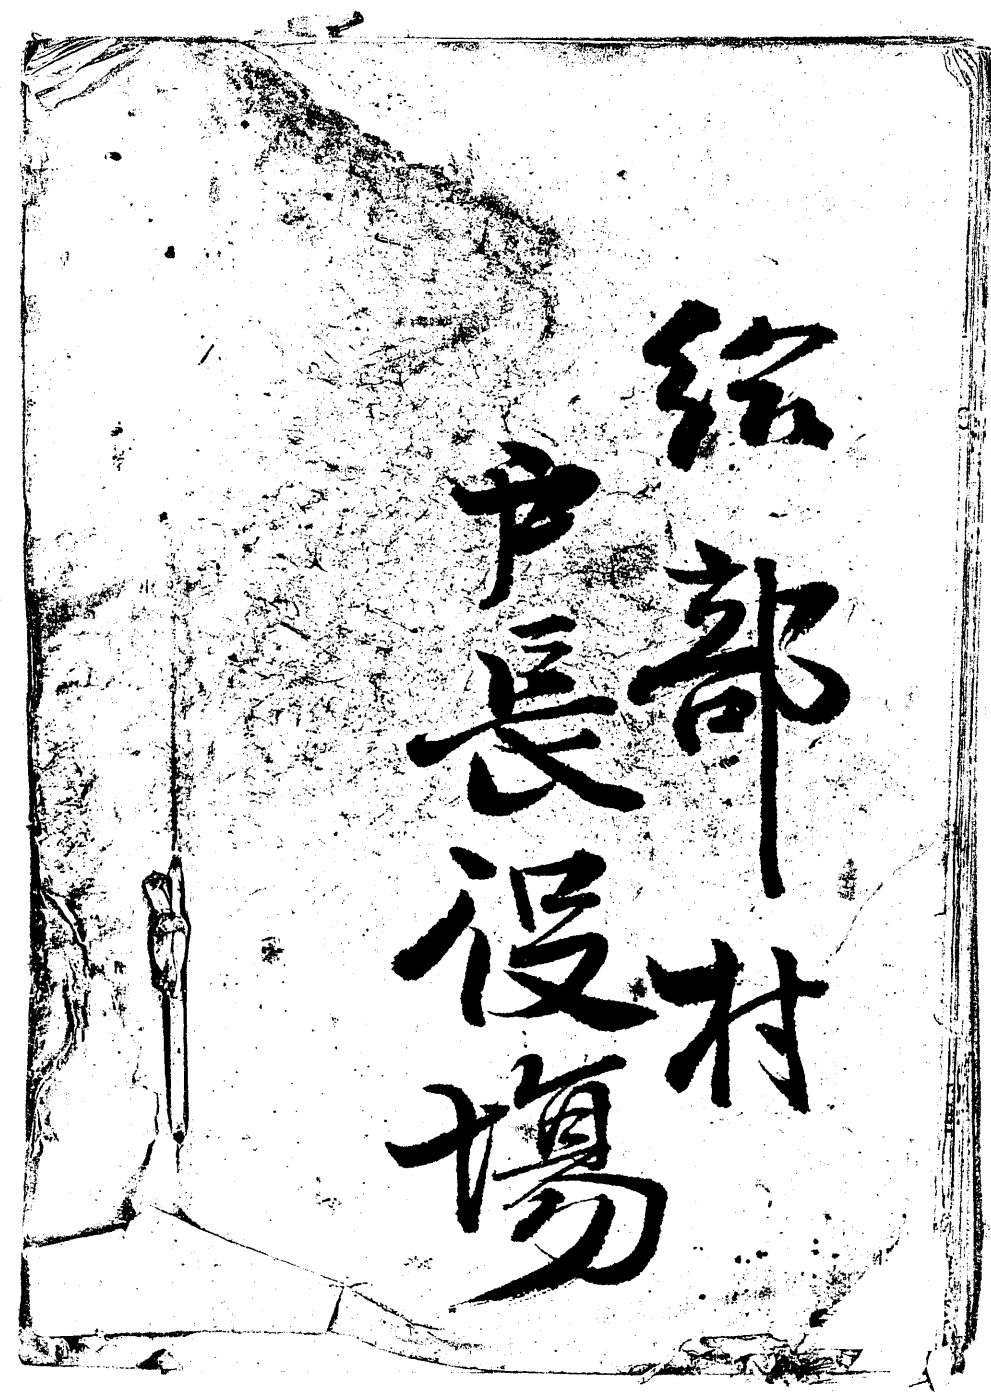 部村
戸長役場